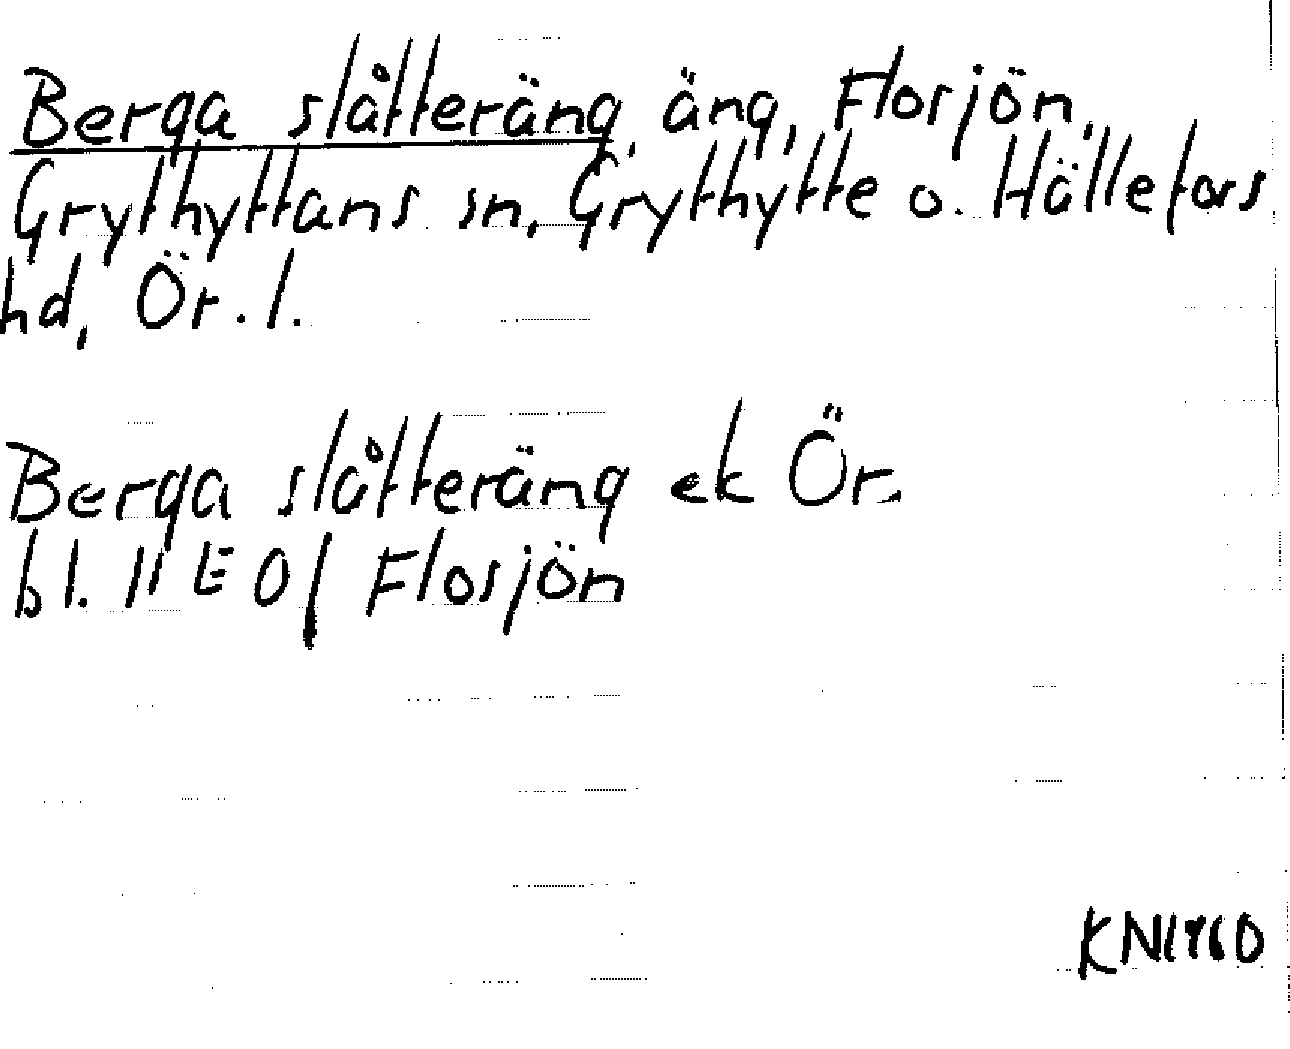 Berga slåtteräng, äng, Flosjön,
Grythyttans sn, Grythytte o. Hällefors
hd, Ör. l.
Berga slåtteräng ek Ör.
bl. 11E 0f Flosjön